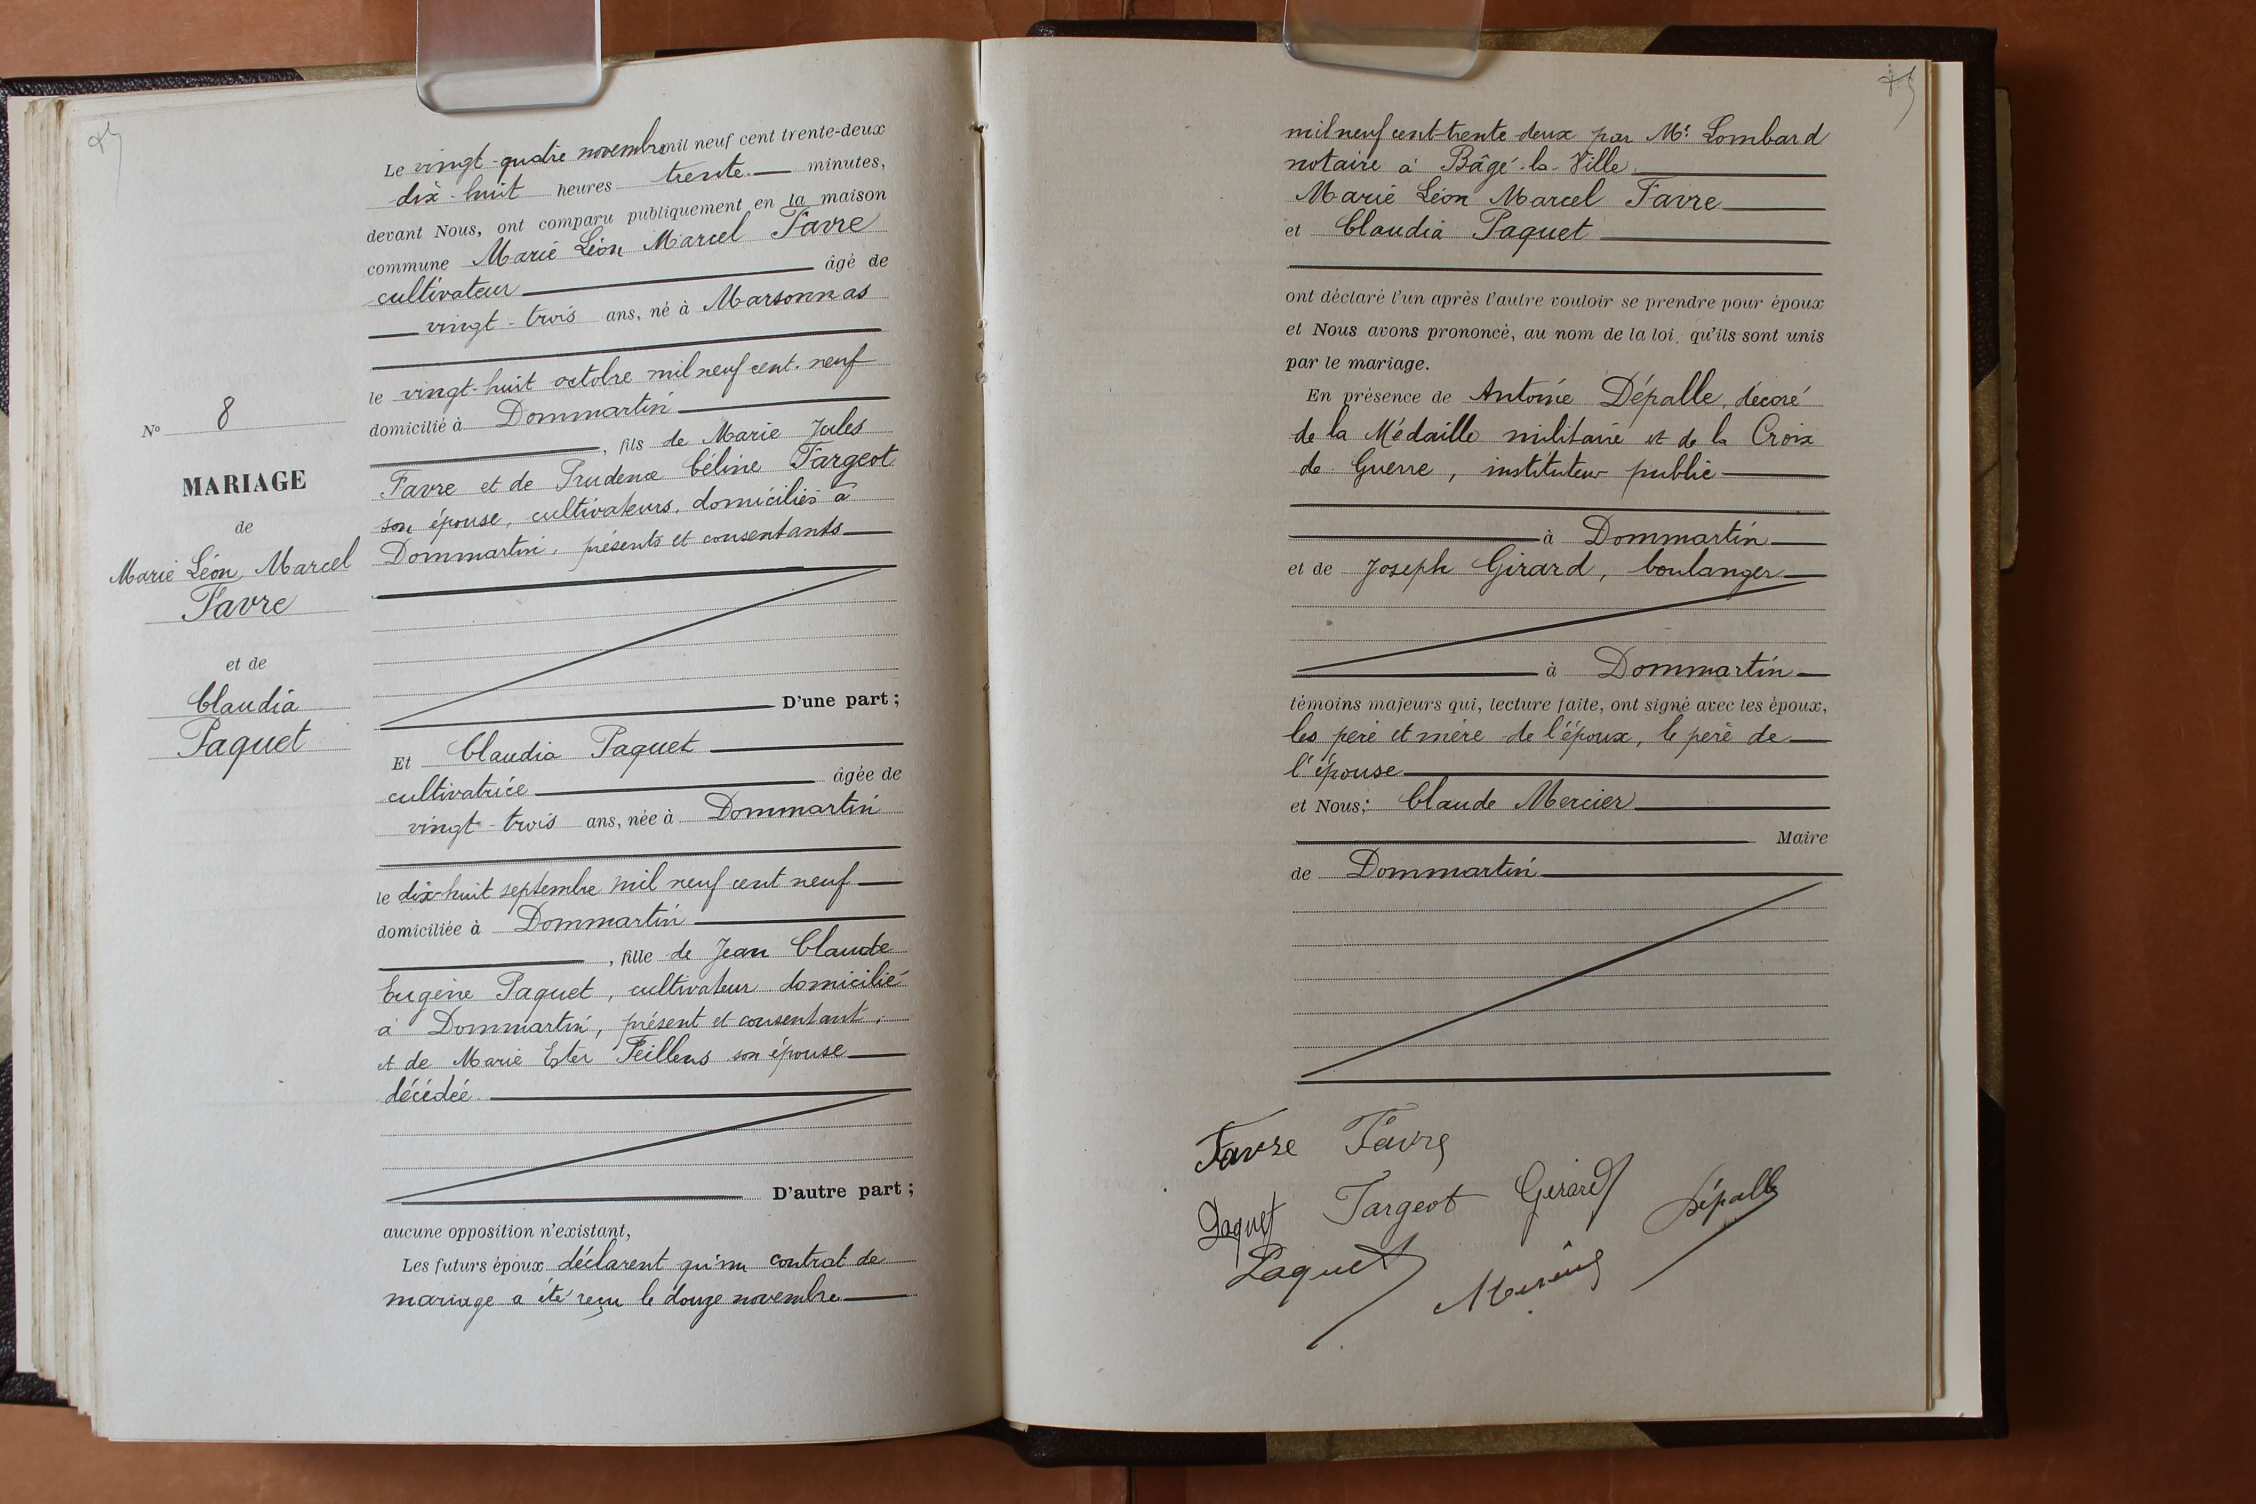 Le vingt-quatre novembre mil neuf cent trente-deux
dix-huit heures trente minutes,
devant Nous, ont comparu publiquement en la maison
commune Marie Léon Marcel Favre
cultivateur âgé de
vingt-trois ans, né à Marsonnas
le vingt-huit octobre mil neuf cent neuf
domicilié à Dommartin
, fils de Marie Jules
Favre et de Prudence Céline Fargeot
son épouse, cultivateurs, domiciliés à
Dommartin, présents et consentants
No 8
MARIAGE
de
Marie Léon Marcel
Favre
et de
Claudia
Paquet
D'une part ;
Et Claudia Paquet
cultivatrice âgée de
vingt-trois ans, née à Dommartin
le dix-huit septembre mil neuf cent neuf
domiciliée à Dommartin
, fille de Jean Claude
Eugène Paquet, cultivateur domicilié
à Dommartin, présent et consentant,
et de Marie Ester Peillens son épouse
décédée
D'autre part ;
aucune opposition n'existant,
Les futurs époux déclarent qu'un contrat de
mariage a été reçu le douze novembre
mil neuf cent-trente-deux par Me Lombard
notaire à Bâgé-la-Ville
Marie Léon Marcel Favre
et Claudia Paquet
ont déclaré l'un après l'autre vouloir se prendre pour époux
et Nous avons prononcé, au nom de la loi, qu'ils sont unis
par le mariage.
En présence de Antoine Dépalle, décoré
de la Médaille militaire et de la Croix
de Guerre, instituteur public
à Dommartin
et de Joseph Girard, boulanger
à Dommartin
témoins majeurs qui, lecture faite, ont signé avec les époux,
les père et mère de l'époux, le père de
l'épouse
et Nous; Claude Mercier
Maire
de Dommartin
Favre Favre
Paquet Fargeot Girard Dépalle
Paquet Mercier